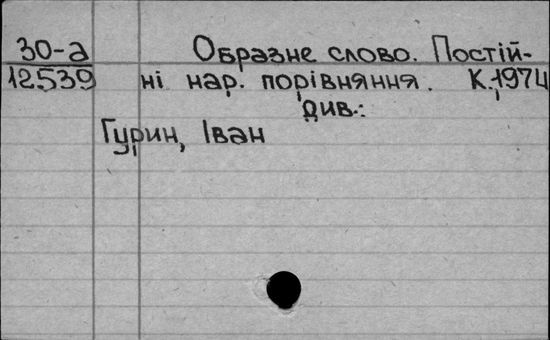 30-а Образне слово. Постій-
12539 ні нар. порівняння. К.,1974
див.:
Гурин, Іван